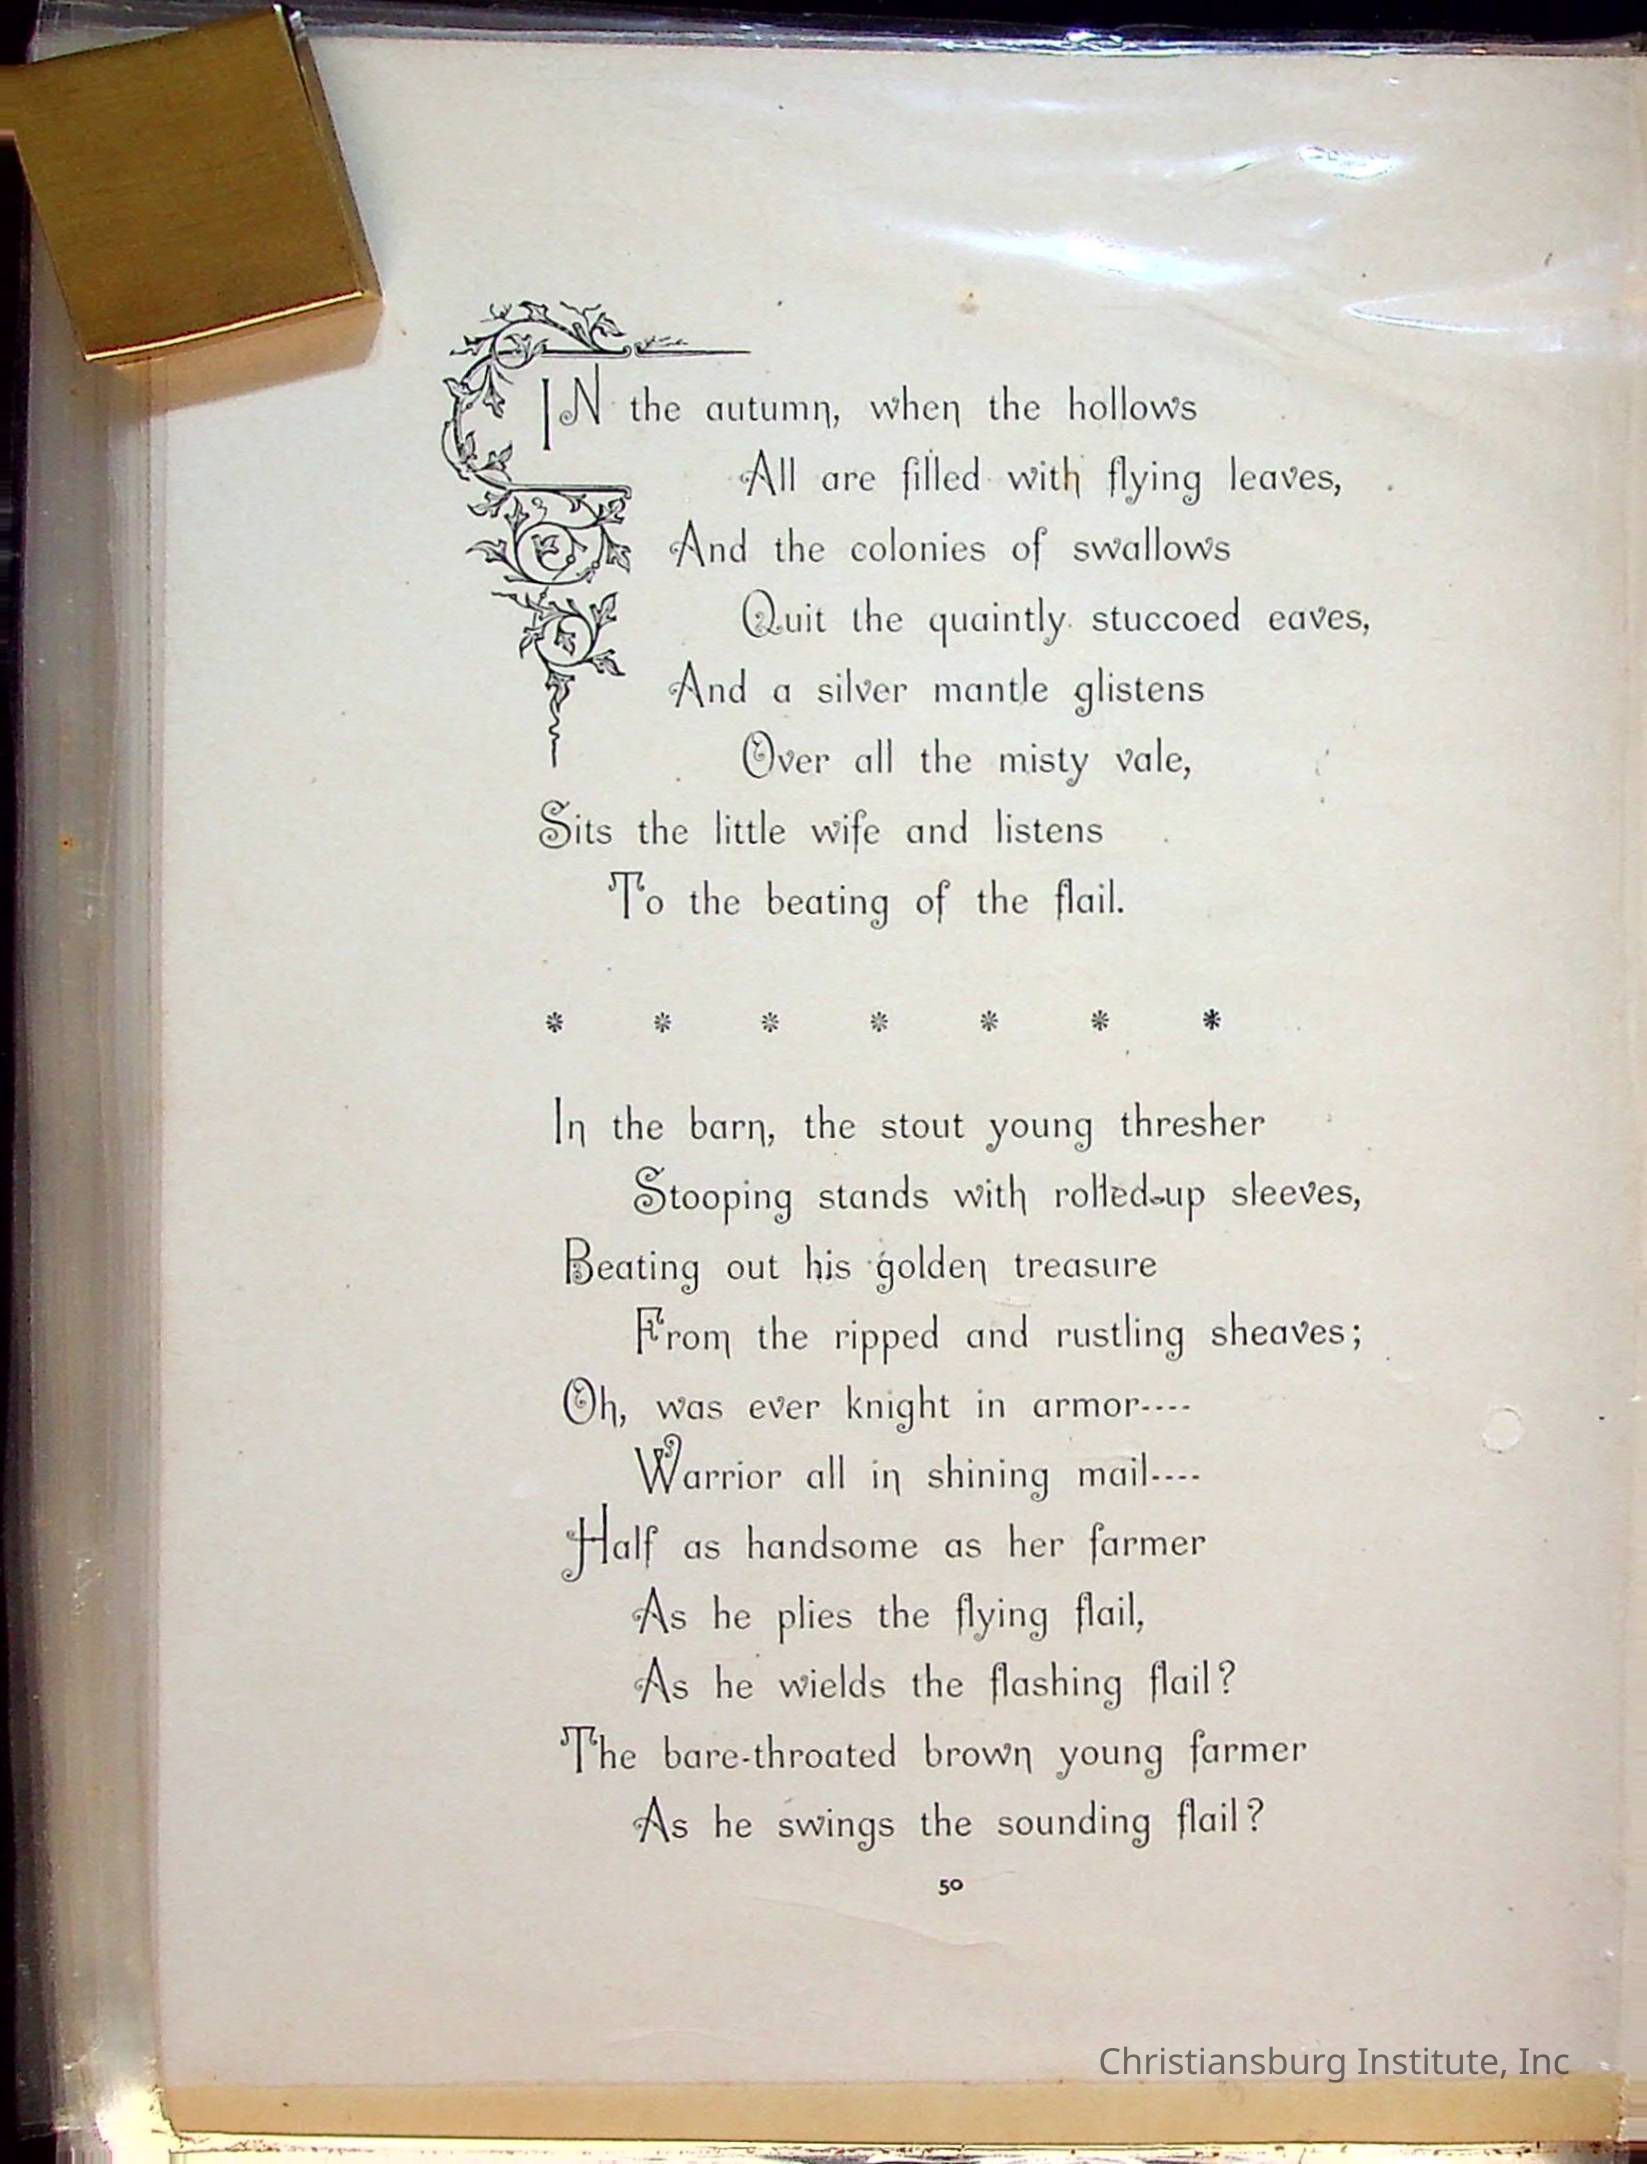 IN the autumn, when the hollows
All are filled with flying leaves,
And the colonies of swallows
Quit the quaintly stuccoed eaves,
And a silver mantle glistens
Over all the misty vale,
Sits the little wife and listens
To the beating of the flail.
* * * * * * *
In the barn, the stout young thresher
Stooping stands with rolled-up sleeves,
Beating out his golden treasure
From the ripped and rustling sheaves;
Oh, was ever knight in armor----
Warrior all in shining mail----
Half as handsome as her farmer
As he plies the flying flail,
As he wields the flashing flail?
The bare-throated brown young farmer
As he swings the sounding flail?
50
Christiansburg Institute, Inc